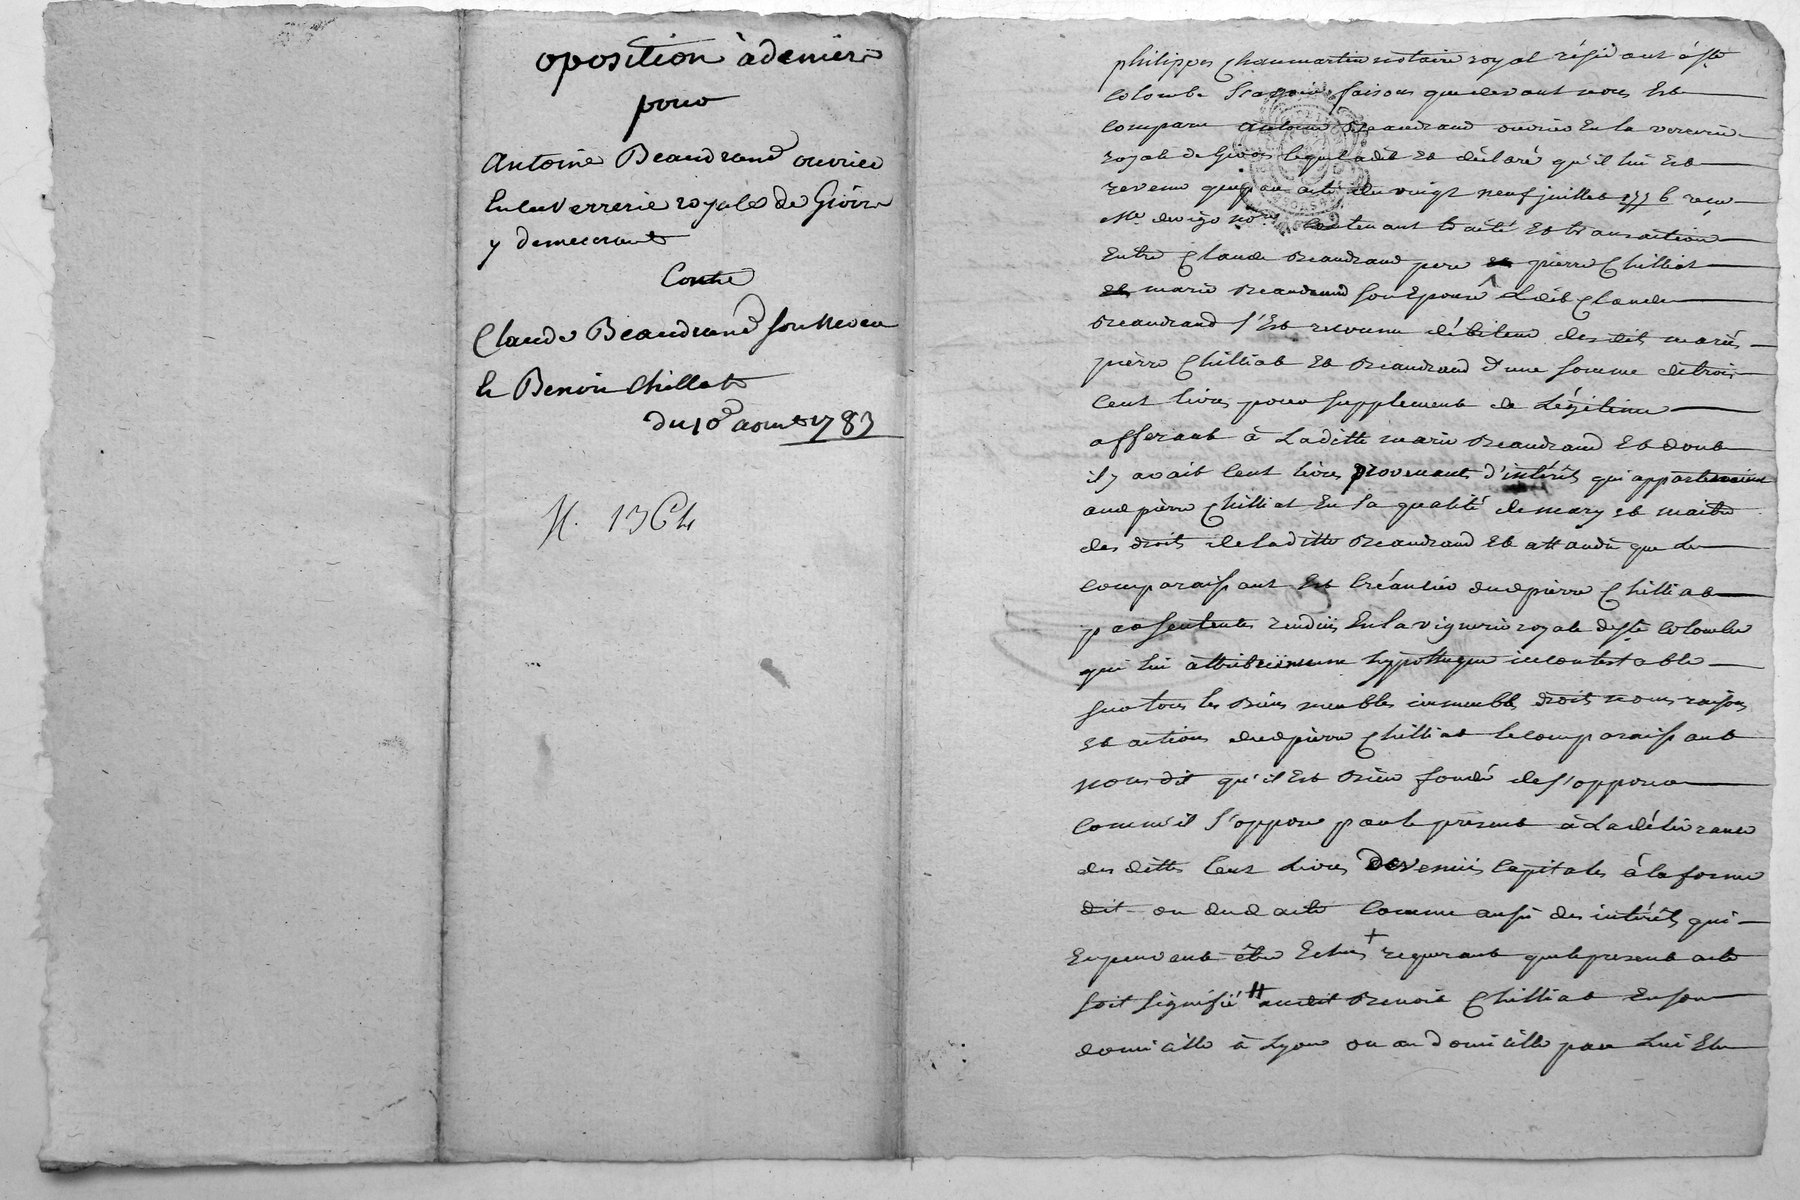 oposition à denier
pour
Antoine Beaudrand ouvrier
En la verrerie royale de Givors
y demeurant
Contre
Claude Beaudrand son Neveu
le Benoit Chillat
du 10e aout 1783
N. 1364
philippes Chaumartin notaire royal résidant à ste
Colombe faisons que devant nous Est
comparu antoine Beaudrand ouvrier En la verrerie
royale de Givors lequel a dit et déclaré qu'il lui Est
revenu que par acte du vingt neuf juillet 1776 recu
Me not contenant traité Et transaction
Entre Claude Beaudrand pere et pierre Chilliat
et marie Beaudrand son Epouse Ledit Claude
Beaudrand s'Est reconnu débiteur des dits mariés
pierre Chilliat Et Beaudrand d'une somme de trois
Cent livres pour supplement de Légitime
afferant à Laditte marie Beaudrand Et dont
il y avait Cent livres provenant d'intérêts qui appartenaient
aud pierre Chilliat En sa qualité de mary et maitre
des droits de laditte Beaudrand Et attandu que le
comparaissant Est Créancier dud pierre Chilliat
par sentences renduës En la viguerie royale de ste Colombe
qui lui attribuënt une hypotheque incontestable
sur tous les Biens meubles immeubles droits noms raisons
et actions dud pierre Chilliat le comparaissant
nous dit qu'il Est Bien fondé de s'opposer
comme il s'oppose par le présent à La délivrance
des dittes Cent Livres devenuës Capitales à la forme
dit ou dud acte comme aussi des intérêts qui
En peuvent être Echus + requerant que le present acte
soit signifié # audit Benoit Chilliat En son
domicille à Lyon ou au domicille par Lui Elu